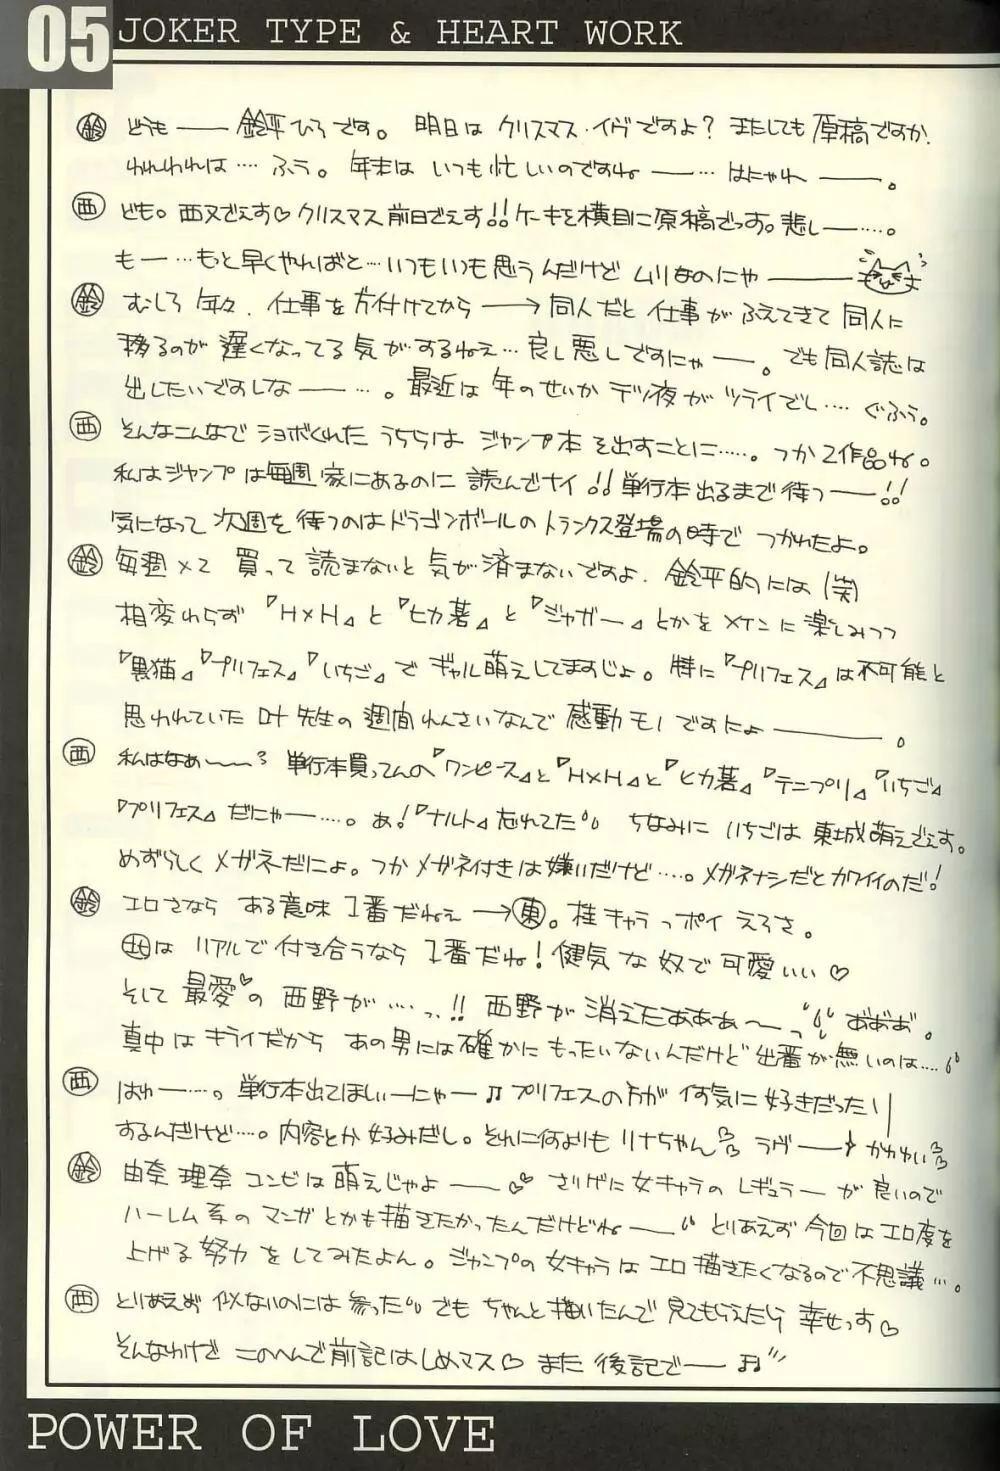 05 JOKER TYPE & HEART WORK
鈴 どうも── 鈴平ひろです。 明日は クリスマス・イヴですよ? またしても原稿ですか、
われわれは…. ふう。 年末は いつも忙しいのですね──… はにゃれ──。
西 ども。西又でえす♡クリスマス前日でえす!!ケーキを横目に原稿でっす。悲し──….。
もー…もっと早くやればと…いつもいつも思うんだけど ムリなのにゃ───
鈴 むしろ 年々、仕事を片付けてから──→同人だと 仕事が ふえてきて 同人に
移るのが 遅くなってる気がするねえ…良し悪しですにゃ──。でも同人誌は
出したいですしな───…。最近は 年のせいか テツ夜が ツライでし…. ぐふう。
西 そんなこんなで ショボくれた うちらは ジャンプ本 を出すことに…..。つか2作品ね。
私はジャンプは毎週家にあるのに 読んでナイ!!単行本出るまで待つ──!!
気になって 次週を 待つのはドラゴンボールの トランクス登場の時で つかれたよ。
鈴 毎週×2 買って 読まないと 気が済まないですよ、鈴平的には(笑)
相変わらず 『H×H』と『ヒカ碁』と『ジャガー』とかをメインに楽しみつつ
『黒猫』『プリフェス』『いちご』で ギャル萌えしてますじょ。特に『プリフェス』は不可能と
思われていた 叶先生の 週間れんさいなんで 感動モノですにょ────。
西 私はなぁ〜〜? 単行本買ってんの『ワンピース』と『H×H』と『ヒカ碁』『テニプリ』『いちご』
『プリフェス』だにゃ──….。あ!『ナルト』忘れてた ちなみに いちごは 東城萌えでえす。
めずらしく メガネだにょ。つかメガネ付きは嫌いだけど….。メガネナシだとカワイイのだ!
鈴 エロさなら ある意味 1番だねえ─→東。桂キャラっポイ えろさ。
北は リアルで付き合うなら 1番だね!健気な奴で可愛いい♡
そして 最愛♡の 西野が….っ!!西野が消えたあああ〜っ おおお。
真中はキライだから あの男には確かに もったいないんだけど 出番が無いのは….
西 はゎ──….。単行本出てほしぃーにゃー♫プリフェスの方が 何気に 好きだったり
するんだけど….。内容とか好みだし。それに何よりも リナちゃん ラヴ── かわゆい
鈴 由奈 理奈 コンビは萌えじゃよ── さりげに女キャラの レギュラーが良いので
ハーレム系の マンガとかも描きたかったんだけどね── とりあえず 今回は エロ度を
上げる努力をしてみたよん。ジャンプの女キャラは エロ描きたくなるので不思議….。
西 とりあえず 似ないのには参った でも ちゃんと描いたんで 見てもらえたら 幸せっす♡
そんなわけで このへんで前記はしめマス♡ また 後記で──♫
POWER OF LOVE